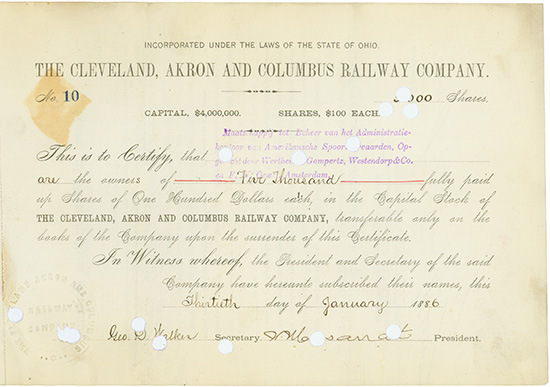 INCORPORATED UNDER THE LAWS OF THE STATE OF OHIO.
THE CLEVELAND, AKRON AND COLUMBUS RAILWAY COMPANY.
No. 10 000 Shares.
CAPITAL, $4,000,000. SHARES, $100 EACH.
Maatschappij tot Beheer van het Administratie-
kantoor van Amerikaansche Spoorwaarden, Op-
door Gompertz, Westendorp & Co.
Amsterdam.
This is to Certify, that
are the owners of Thousand fully paid
up Shares of One Hundred Dollars each, in the Capital Stock of
THE CLEVELAND, AKRON AND COLUMBUS RAILWAY COMPANY, transferable only on the
books of the Company upon the surrender of this Certificate.
In Witness whereof, the President and Secretary of the said
Company have hereunto subscribed their names, this
Thirtieth day of January 1886
Geo. D. Walker Secretary. President.